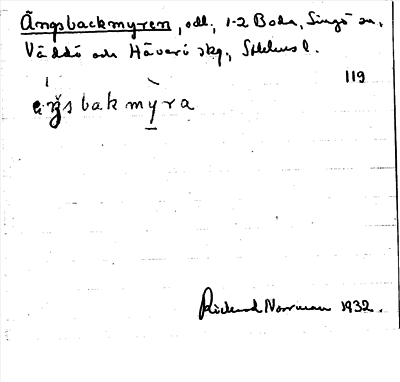 Ängsbackmyren, odl., 1-2 Boda, Singö sn,
Väddö och Häverö skg, Sthlms l.
119
äŋsbakmỳra
Rickard Norrman 1932.